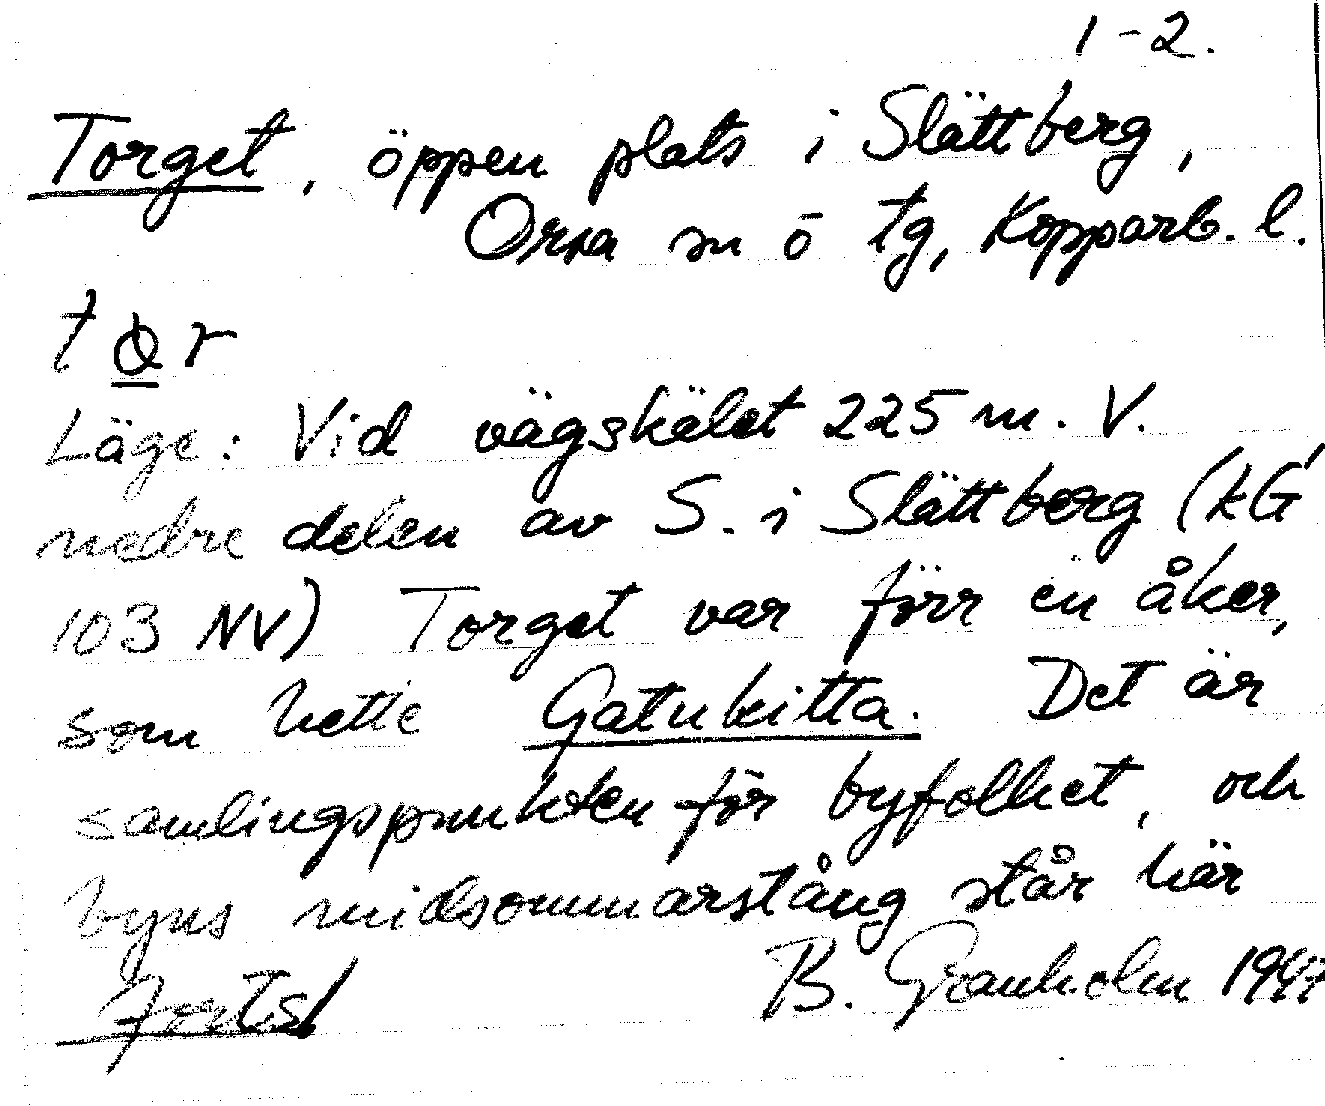 1-2.
Torget, öppen plats i Slättberg,
Orsa sn ö tg, Kopparb. l.
Läge: Vid vägskälet 225 m. V.
nedre delen av S. i Slättberg (kG
103 NV) Torget var förr en åker,
som hette Gatubitta. Det är
samlingspunkten för byfolket, och
byns midsommarstång står här
Forts/ B. Granholm